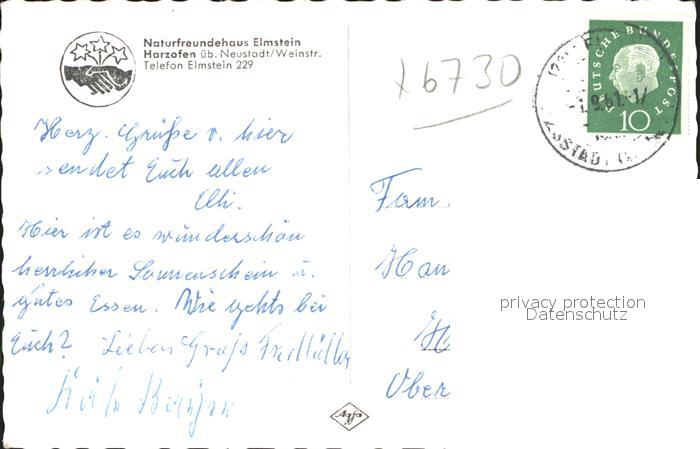 Naturfreundehaus Elmstein
Harzofen üb. Neustadt/Weinstr.
Telefon Elmstein 229
x6730
DEUTSCHE BUNDESPOST
10
Herz. Grüße v. hier
sendet Euch allen
Elli.
Hier ist es wunderschön
herrlicher Sonnenschein u.
gutes Essen. Wie gehts bei
Euch? Lieben Gruß
Fam.
Hau
H
Ober
privacy protection
Datenschutz